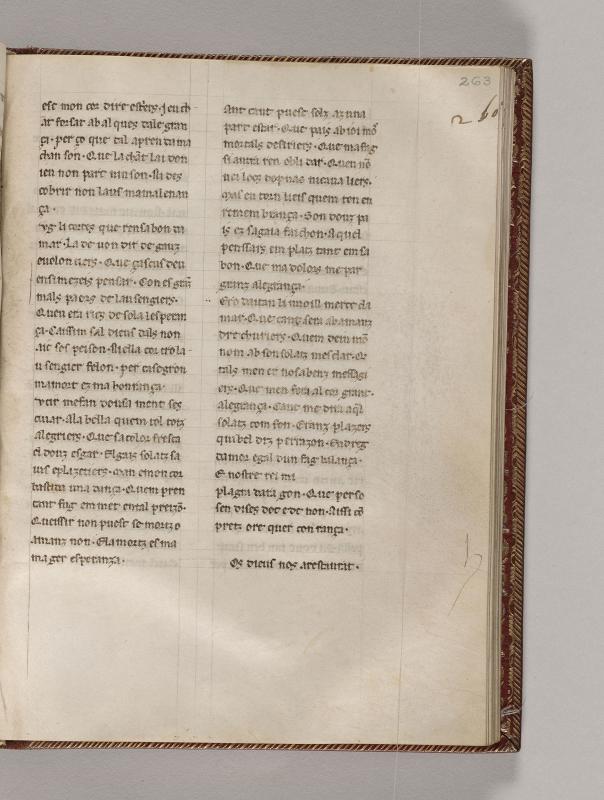 263
260
est mon cor dire esters. J eu ch
ar forsar ab al ques tale gran
ça. per ço que tal apren du ma
chan son. Que la chāt lai don
ien non part niuson. Si des
cobrir non laus mamalenan
ça.
li cortes que ren sa bon da
mar. La de von dir de gauz
Que çascus deu
pensar. Con es grā
mals paors de lausengiers.
Quen era ricz de sola lesperan
ça. Caissim sal dieus dals non
aic ses peison. Si ella cor cro la
u sengier felon. per cas
mamort ez ma honranza.
inent ses
cuiar. Ala bella quem tol totz
alegriers. Que sa color fresca
el douz esgar. El gais solatz sa
uis eplazeriers. man emon cor
bastida una dança. Quem pren
tant fug em met en tal preizō.
Queissir non puesc se mortz o
amanz non. El a mortz es ma
mager esperanza.
Ant cant puesc solz az una
part estar. Que pais ab ioi mō
mortals desiriers. Que ma fug
si autra ren obli dar. Quen nō
uei locs dopnas
mas en torn lieis quem ren en
remem brança. Son douz pa
is ez sa gaia faichon. Aquel
pensars em platz tant em sa
bon. Que ma dolors me par
granz alegrança.
Ero dautan li mo ill merce cla
mar. Que tang sera ab amanz
dre churiers. Quem dein mō
nom ab son solatz mesclar. Qe
tals men er nos abenz messagi
ers. Que men fora al cor grant.
alegrança. Cant me dira aql
solatz com fon. Eranz plazers
qui bel ditz per razon.
damor egal dun fag balança.
E nostre rei mi
plagra dara gon. Que per so
sen dises doc e de non. Aissi cō
pretz o re quer con tança.
Qs dieus nos arestaurar.